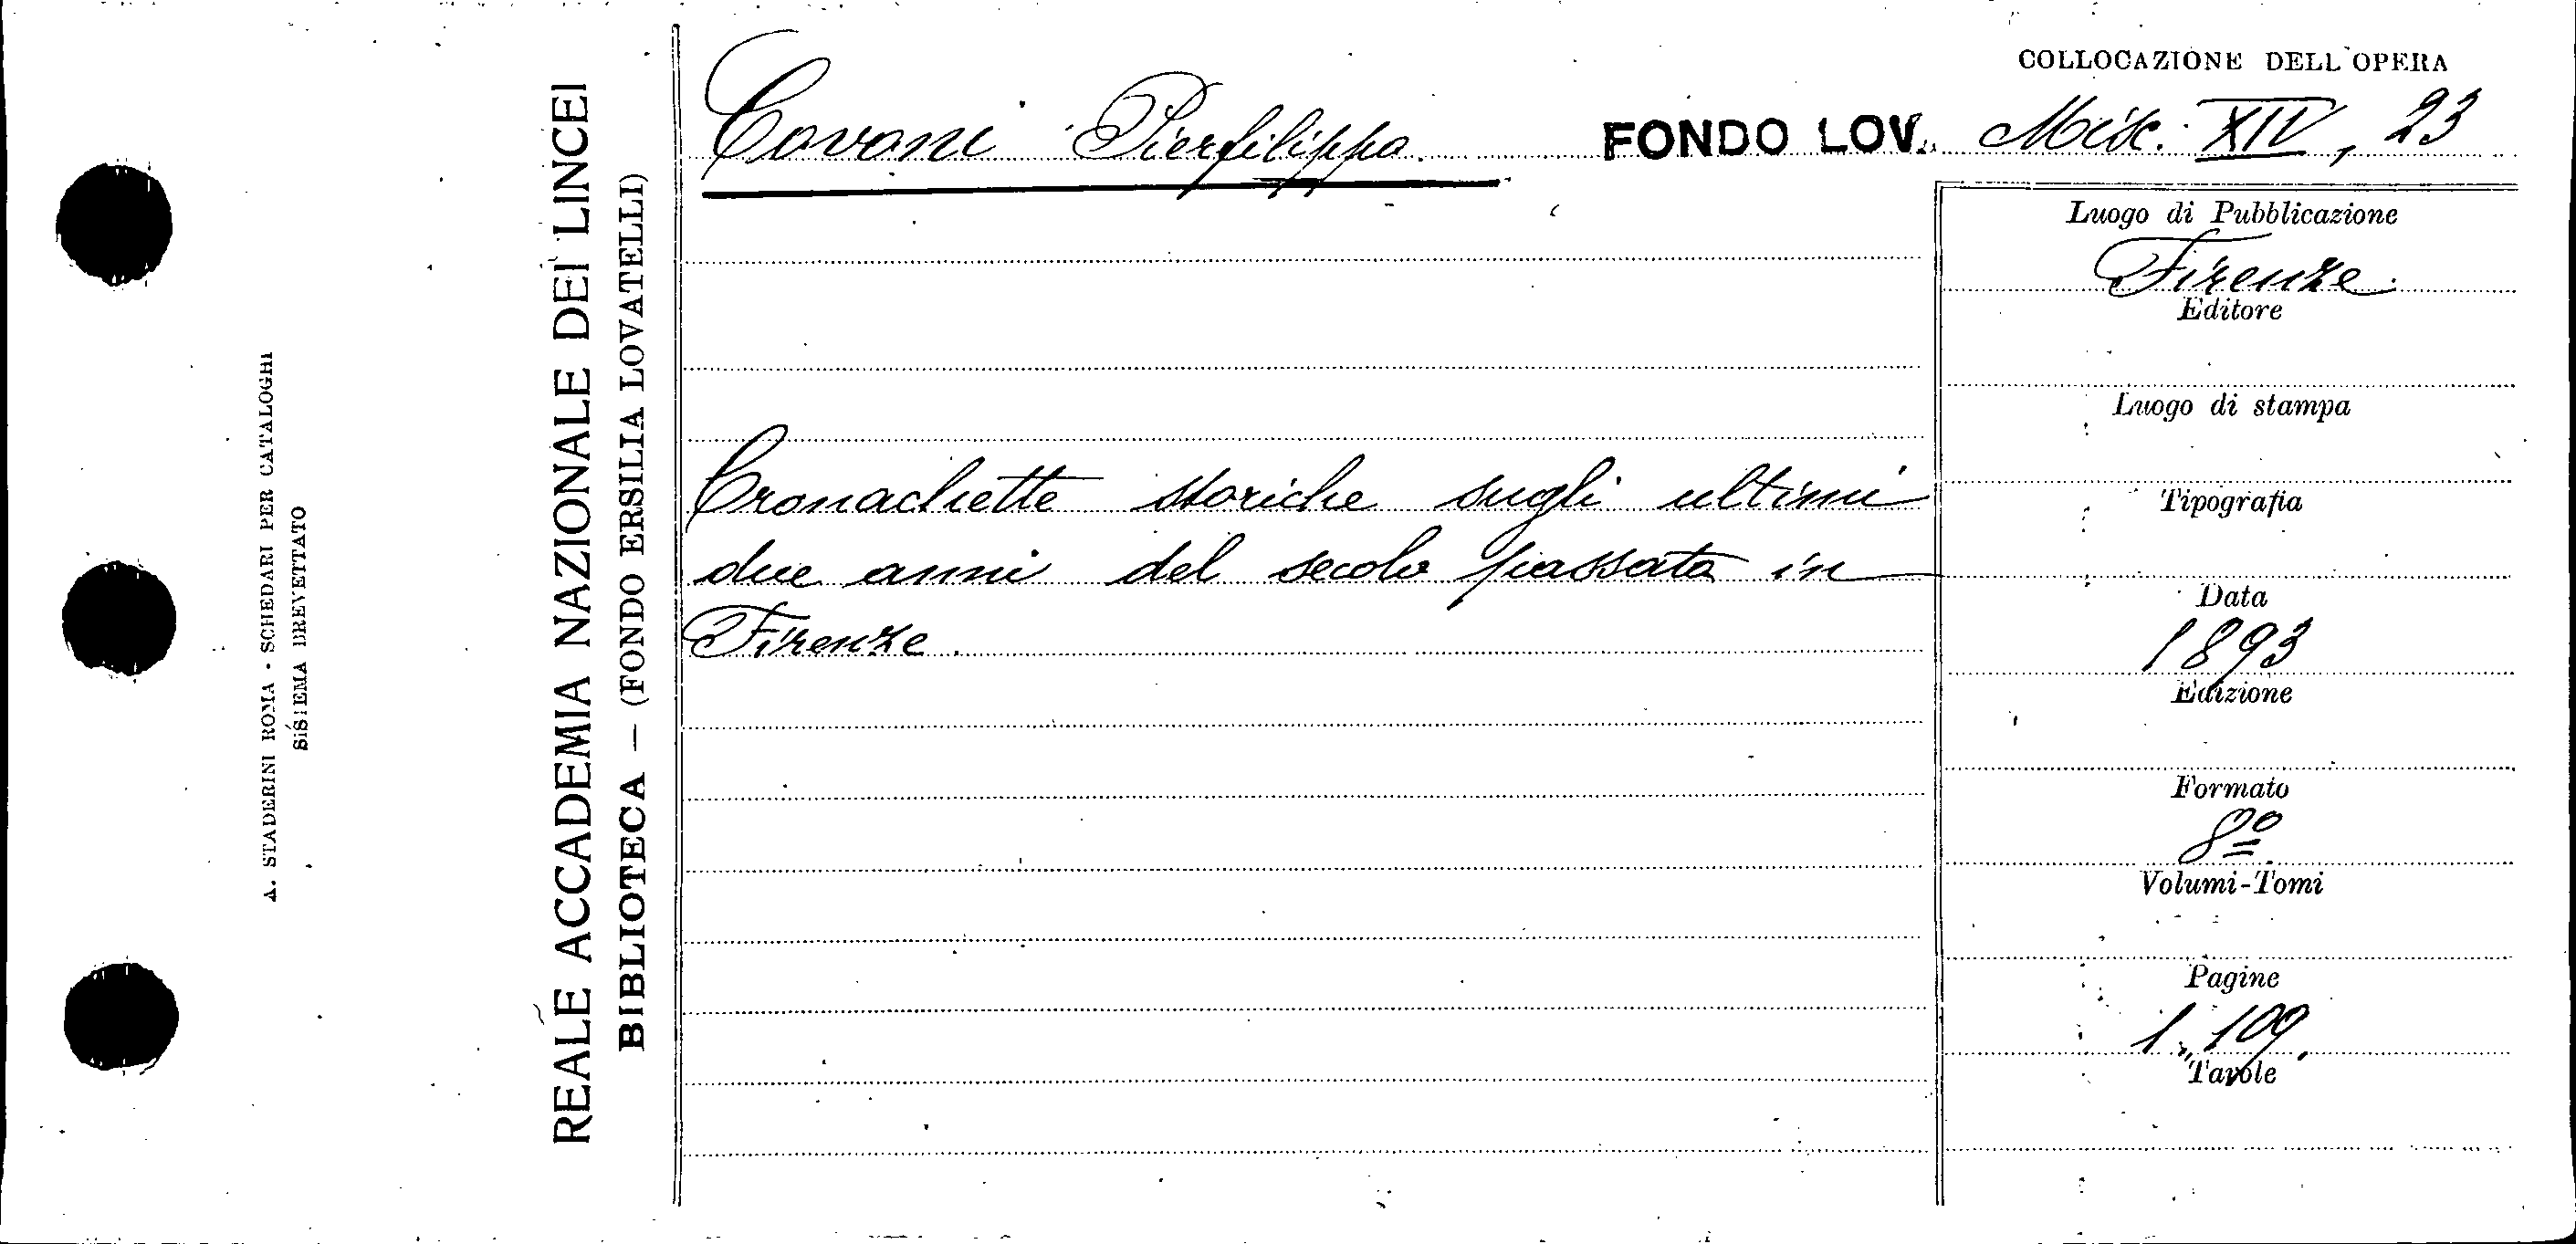 COLLOCAZIONE DELL'OPERA
Covoni Pierfilippo
FONDO LOV. Misc. XIV, 23
Cronachette storiche sugli ultimi
due anni del secolo passato in
Firenze.
Luogo di Pubblicazione
Firenze
Editore
Luogo di stampa
Tipografia
Data
1893
Edizione
Formato
8º
Volumi-Tomi
Pagine
1, 109.
Tavole
REALE ACCADEMIA NAZIONALE DEI LINCEI
BIBLIOTECA — (FONDO ERSILIA LOVATELLI)
A. STADERINI ROMA - SCHEDARI PER CATALOGHI
SISTEMA BREVETTATO